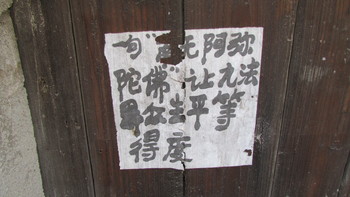 句“南无阿弥
陀佛”让九法
界众生平等
得度